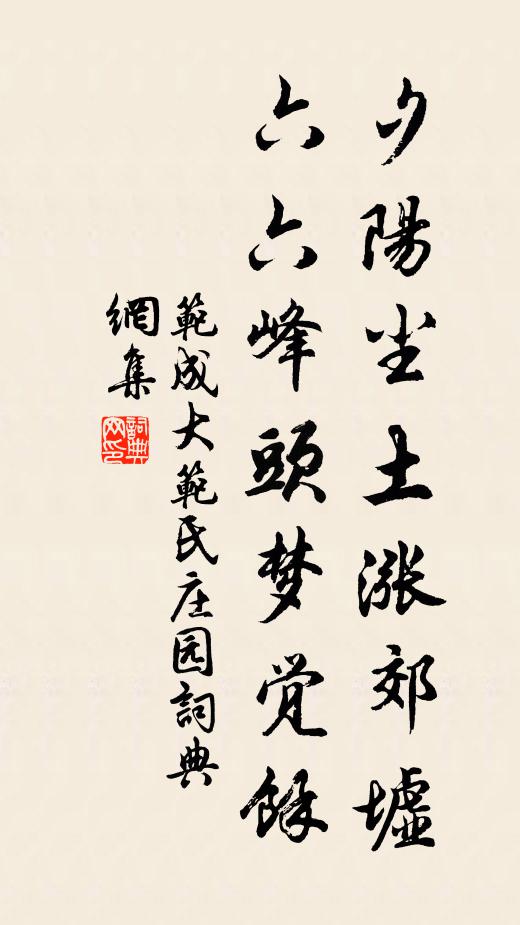 夕陽尘土涨郊墟
六六峰頭梦觉餘
範成大範氏庄园詞典
網集
詞典
网印